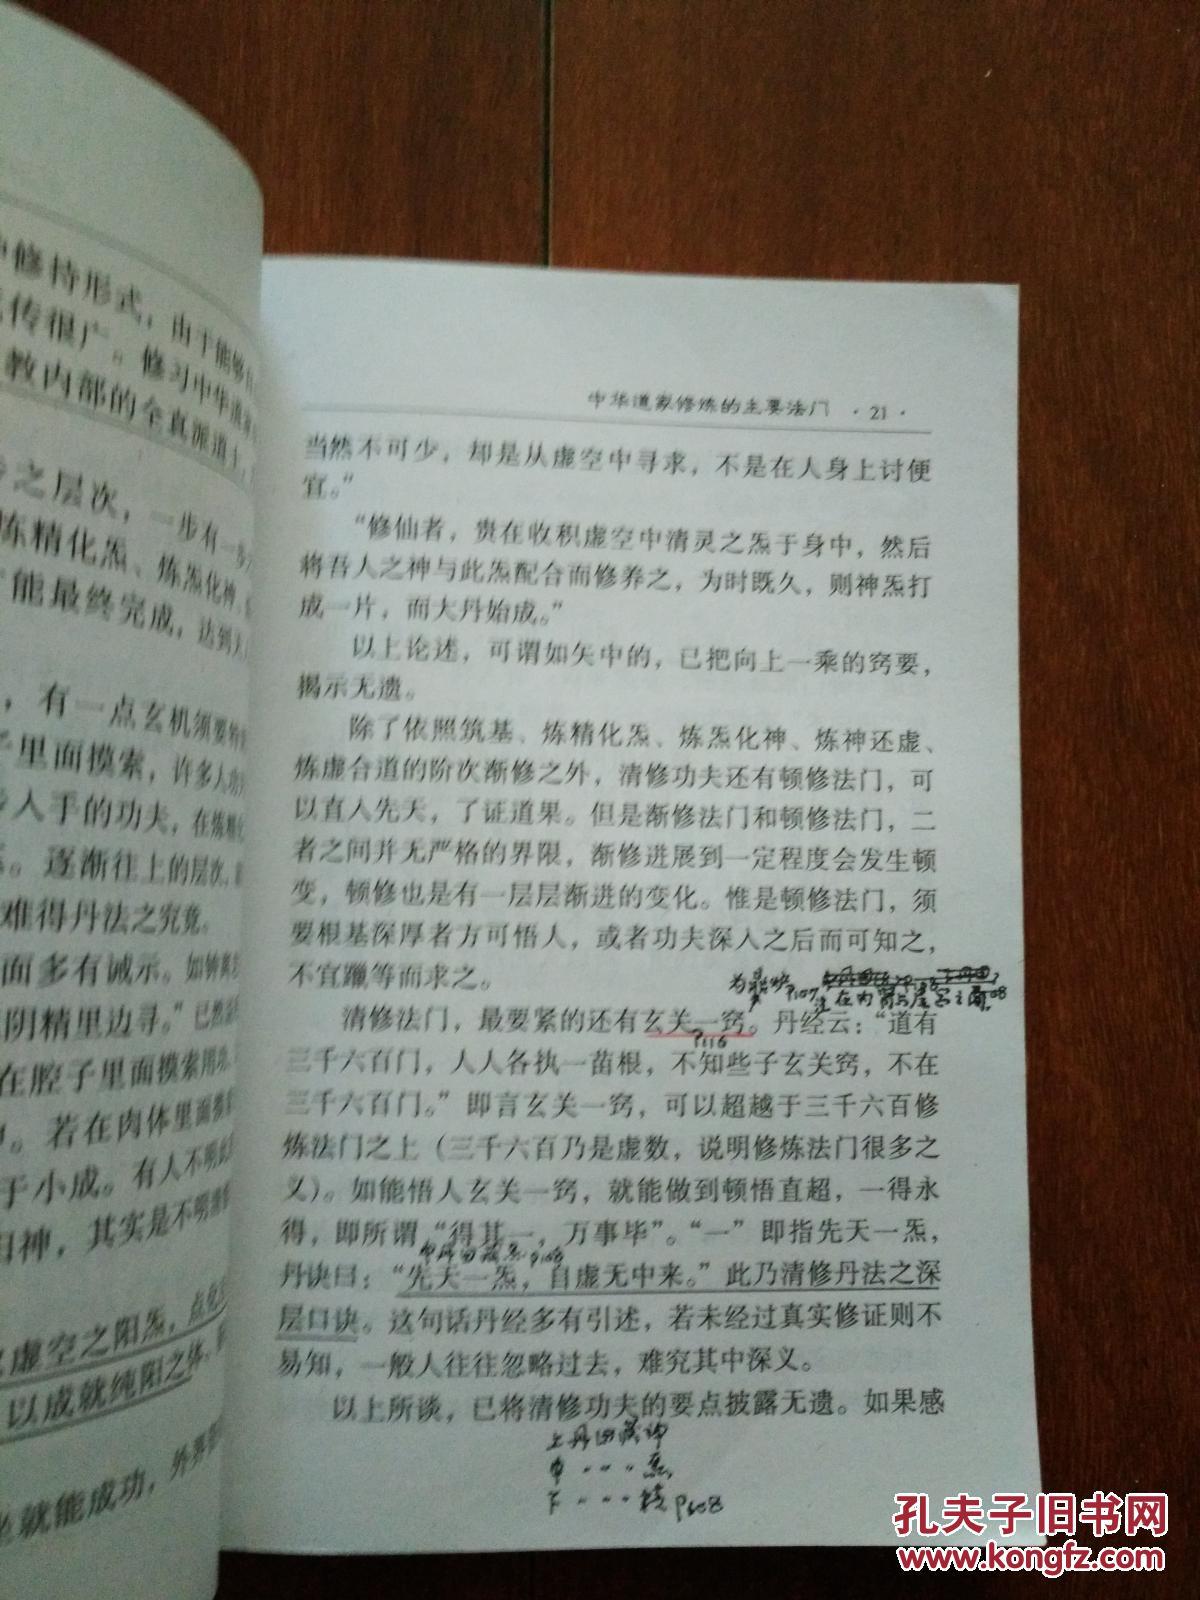 修持形式，由于能够
传很广。修习中华道
教内部的全真派道士，
之层次，一步有一步
炼精化炁、炼炁化神、
能最终完成，达到天
，有一点玄机须要特
里面摸索，许多人功
入手的功夫，在炼精化
。逐渐往上的层次，
难得丹法之究竟。
面多有诫示。如钟离
阴精里边寻。”已然
在腔子里面摸索用功
。若在肉体里面
于小成。有人不明此
神，其实是不明
虚空之阳炁，点化
以成就纯阳之体，
就能成功，外界
中华道家修炼的主要法门 ·21·
当然不可少，却是从虚空中寻求，不是在人身上讨便
宜。”
“修仙者，贵在收积虚空中清灵之炁于身中，然后
将吾人之神与此炁配合而修养之，为时既久，则神炁打
成一片，而大丹始成。”
以上论述，可谓如矢中的，已把向上一乘的窍要，
揭示无遗。
除了依照筑基、炼精化炁、炼炁化神、炼神还虚、
炼虚合道的阶次渐修之外，清修功夫还有顿修法门，可
以直入先天，了证道果。但是渐修法门和顿修法门，二
者之间并无严格的界限，渐修进展到一定程度会发生顿
变，顿修也是有一层层渐进的变化。惟是顿修法门，须
要根基深厚者方可悟入，或者功夫深入之后而可知之，
不宜躐等而求之。
P107
在内肾与
清修法门，最要紧的还有玄关一窍。丹经云：“道有
P116
三千六百门，人人各执一苗根，不知些子玄关窍，不在
三千六百门。”即言玄关一窍，可以超越于三千六百修
炼法门之上（三千六百乃是虚数，说明修炼法门很多之
义）。如能悟入玄关一窍，就能做到顿悟直超，一得永
得，即所谓“得其一，万事毕”。“一”即指先天一炁，
中丹田藏炁P108
丹诀曰：“先天一炁，自虚无中来。”此乃清修丹法之深
层口诀。这句话丹经多有引述，若未经过真实修证则不
易知，一般人往往忽略过去，难究其中深义。
以上所谈，已将清修功夫的要点披露无遗。如果感
上丹田藏神
中 · · · 炁
下 · · · 精 P108
孔夫子旧书网
www.kongfz.com